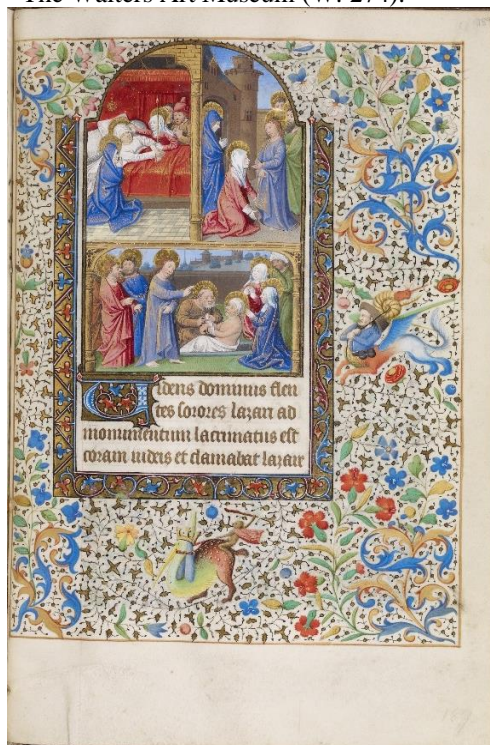 The Walters Art Museum (W. 274).
Videns dominus flen
tes sorores lazari ad
monumentum lacrimatus est
coram iudeis et clamabat lazare